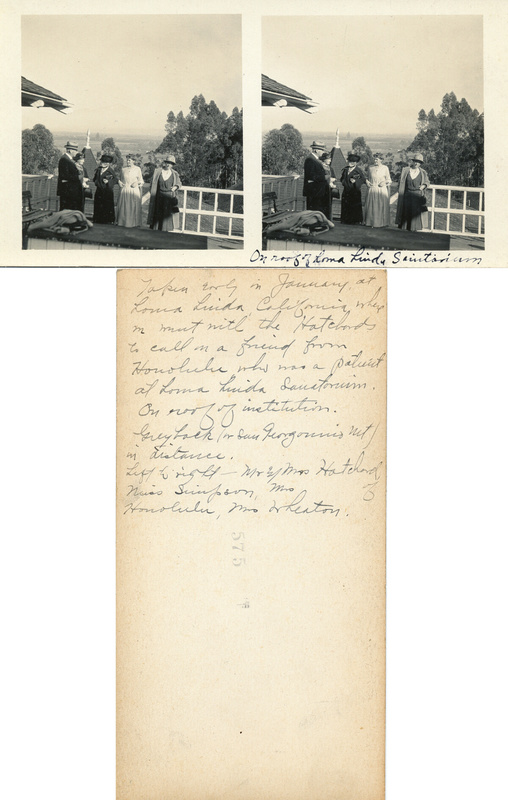 On roof of Loma Linda Sanitarium
Taken early in January, at
Loma Linda, California, when
we went with the Hatchards
to call on a friend from
Honolulu who was a patient
at Loma Linda Sanatorium.
On roof of institution.
Greyback (or San Georgonnis Mt)
in distance.
Left to right - Mr & Mrs Hatchard
Miss Simpson, Mrs of
Honolulu, Mrs Wheaton.
575